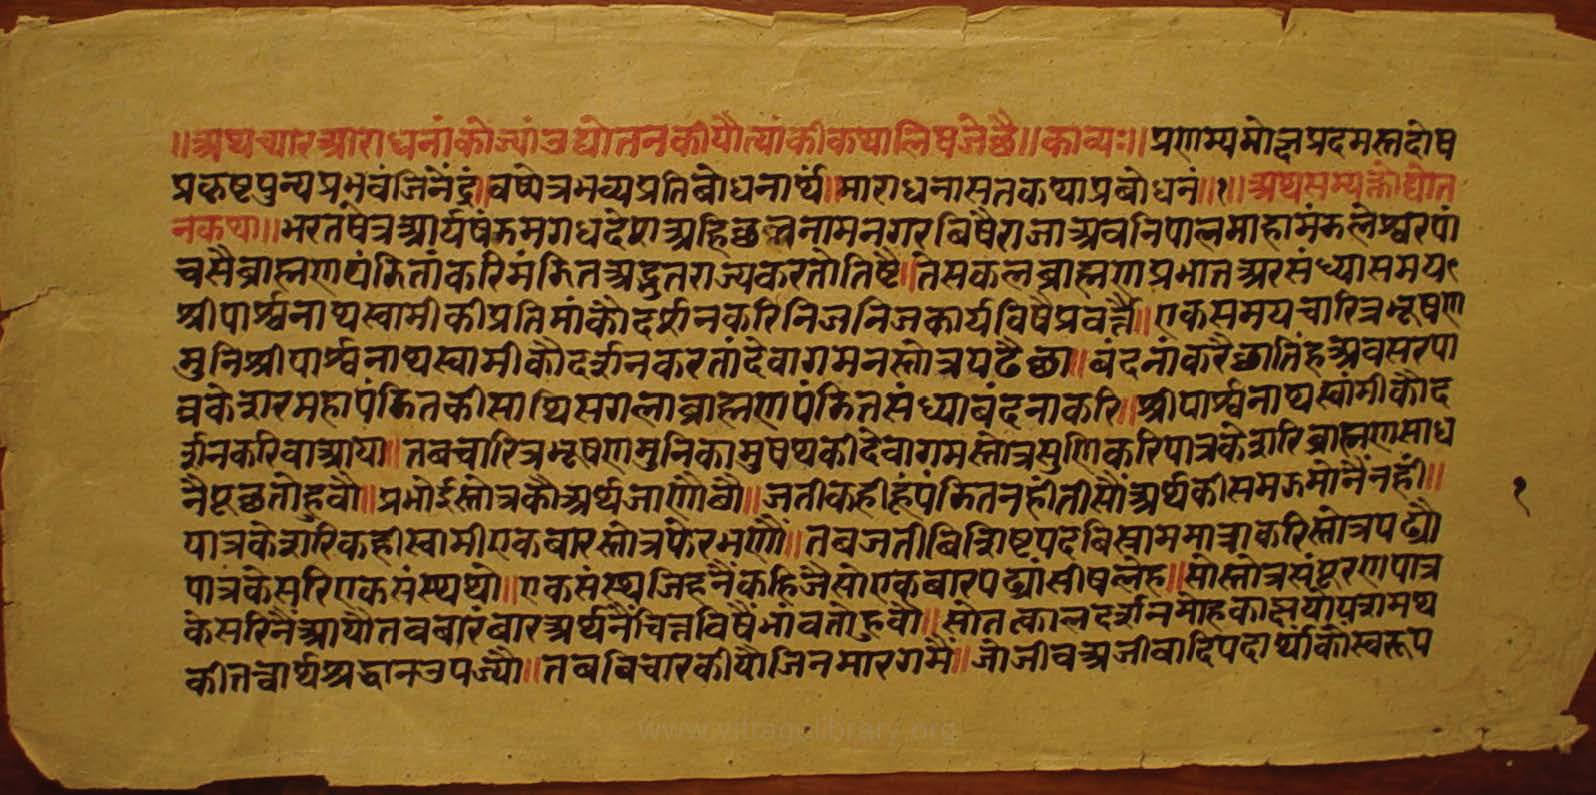 ॥अथ च्यार आराधनां को ज्यां उद्योतन कीयौ त्यां की कथा लिषजे छै॥काव्यः॥प्रणम्य मोक्षप्रदमस्तदोष
प्रकृष्टपुन्यप्रभवं जिनेंद्रं॥वष्येत्र भव्यप्रतिबोधनार्थं॥माराधनासतकथाप्रबोधनं॥१॥अथ सम्यक्तोद्योत
न कथा॥भरतषेत्र आर्यषंड मगध देश अहिछत्र नाम नगर बिषै राजा अवनिपाल माहामंडलेश्वर पां
च सै ब्राह्मण पंडितां करि मंडित अद्भुत राज्य करतो तिष्टै॥ते सकल ब्राह्मण प्रभात अर संध्या समय
श्री पार्श्वनाथ स्वामी की प्रतिमां कौ दर्शन करि निज निज कार्य विषै प्रवर्त्तै॥एक समय चारित्रभूषण
मुनि श्री पार्श्वनाथ स्वामी कौ दर्शन करतां देवागमन स्तोत्र पढै छा॥बंदनां करै छा तिंह अवसर पा
त्रकेशर महा पंडित की साथि सगला ब्राह्मण पंडित संध्या बंदना करि॥श्री पार्श्वनाथ स्वामी कौ द
र्शन करिवा आया॥तब चारित्रभूषण मुनि का मुष थकी देवागम स्तोत्र सुणि करि पात्रकेशरि ब्राह्मण साध
नै पूछतो हुवौ॥प्रभो ई स्तोत्र कौ अर्थ जाणौ बौ॥जती कही हूं पंडित नहीं तीसौं अर्थ की समझ मोनैं नहीं॥
पात्रकेशरि कही स्वामी एक बार स्तोत्र फेर भणौं॥तब जती बिशिष्ट पद बिस्राम मात्रा करि स्तोत्र पढ्यौ
पात्रकेसरि एक संस्थ थो॥एक संस्थ जिह नैं कहिजै सो एक बार पढ्यां सीष लेह॥सो स्तोत्र संपूरण पात्र
केसरि नैं आयौ तब बारंबार अर्थ नैं चित्त विषैं भांवतो हुवौ॥सो तत्काल दर्शन मोह का
की तत्वार्थ श्रद्धान उपज्यौ॥तब बिचार कीयौ जिन मारग मैं॥जो जीव अजीवादि पदार्थां को स्वरूप
१
www.vitragelibrary.org